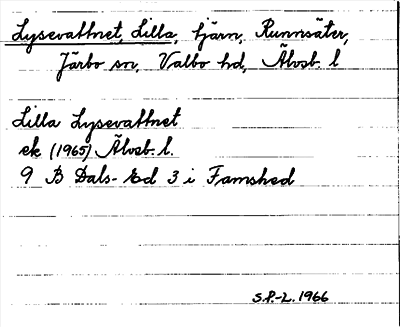 Lysevattnet, Lilla, tjärn, Runnsäter,
Järbo sn, Valbo hd, Älvsb. l
Lilla Lysevattnet
ek (1965) Älvsb. l.
9 B Dals-Ed 3 i Famshed
S.P.-L. 1966